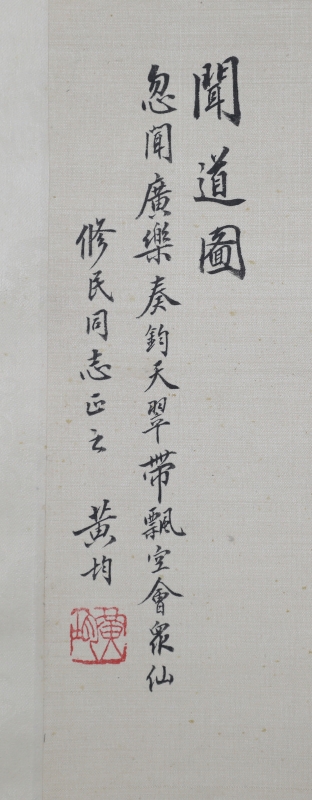 聞道圖
忽聞廣樂奏鈞天翠帶飄空會眾仙
修民同志正之
黃均
黃均